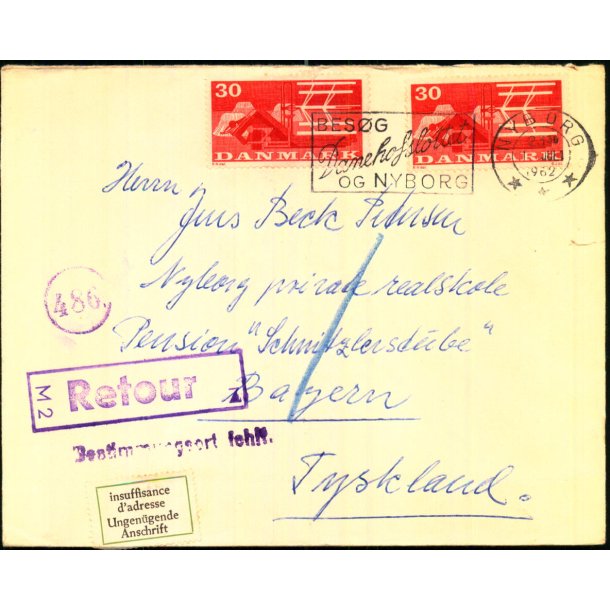 30
30
DANMARK
DANMARK
BESØG
Danehofslottet
OG NYBORG
NYBORG
1962
Herrn
Jens Beck Petersen
Nyborg private realskole
Pension "Schnitzlerstübe"
Bayern
Tyskland.
486.
M2
Retour
Bestimmungsort fehlt.
insuffisance
d'adresse
Ungenügende
Anschrift